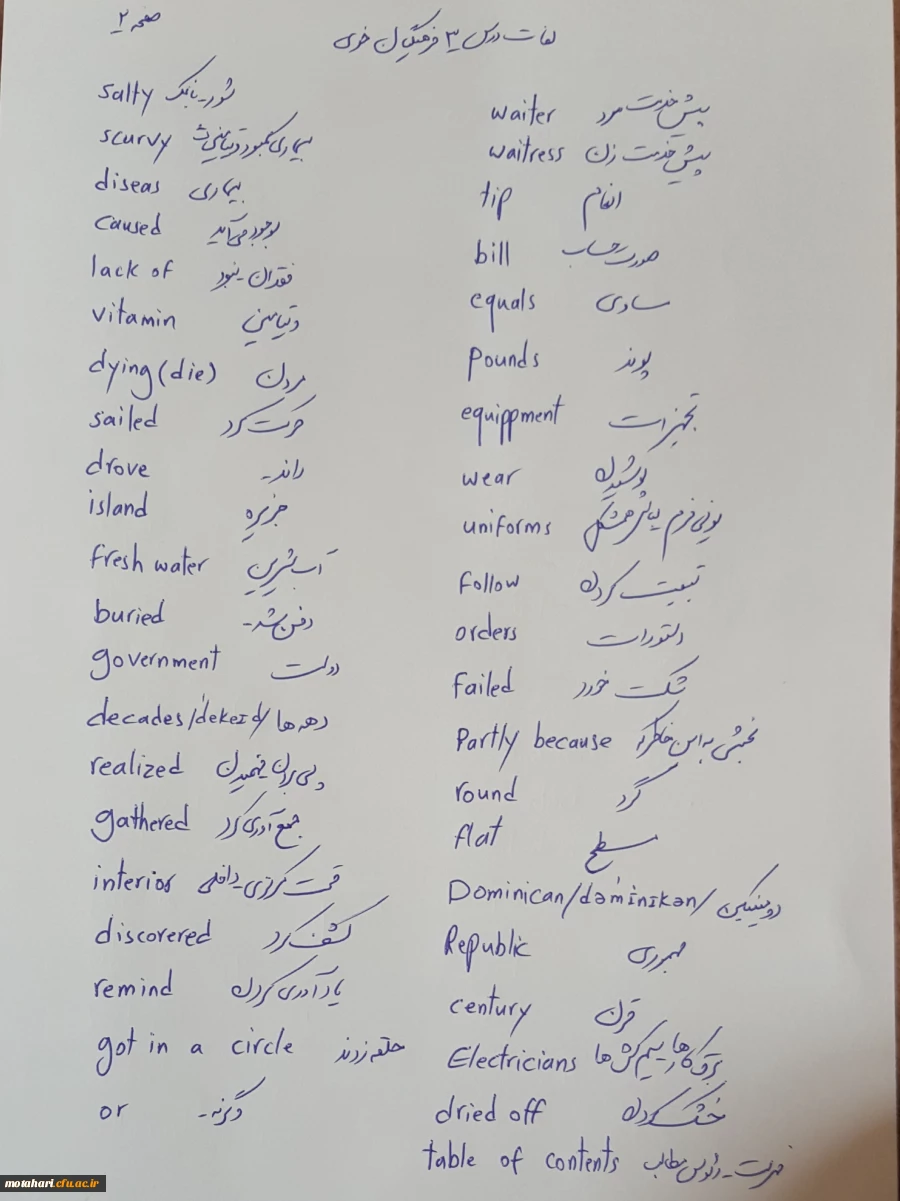 صفحه ۲
لغات درس ۳
waiter پیش خدمت مرد
waitress پیش خدمت زن
tip انعام
bill صورت حساب
equals مساوی
pounds پوند
equippment تجهیزات
wear پوشیدن
uniforms یونی فرم
follow تبعیت کردن
orders دستورات
failed شکست خورد
Partly because بخشی به این خاطر که
round گرد
flat مسطح
Dominican/dəmˈinɪkən/ دومینیکن
Republic جمهوری
century قرن
Electricians برق کارها سیم کش ها
dried off خشک کردن
table of contents فهرست - رئوس مطالب
salty شور - با نمک
scurvy بیماری کمبود ویتامین ث
diseas بیماری
caused بوجود می آید
lack of فقدان - نبود
vitamin ویتامین
dying (die) مردن
sailed حرکت کرد
drove راند -
island جزیره
fresh water آب شیرین
buried دفن شد -
government دولت
decades/ˈdekeɪd/ دهه ها
realized پی بردن فهمیدن
gathered جمع آوری کرد
interior قسمت مرکزی - داخلی
discovered کشف کرد
remind یاد آوری کردن
got in a circle حلقه زدند
or وگرنه -
motahari.cfu.ac.ir